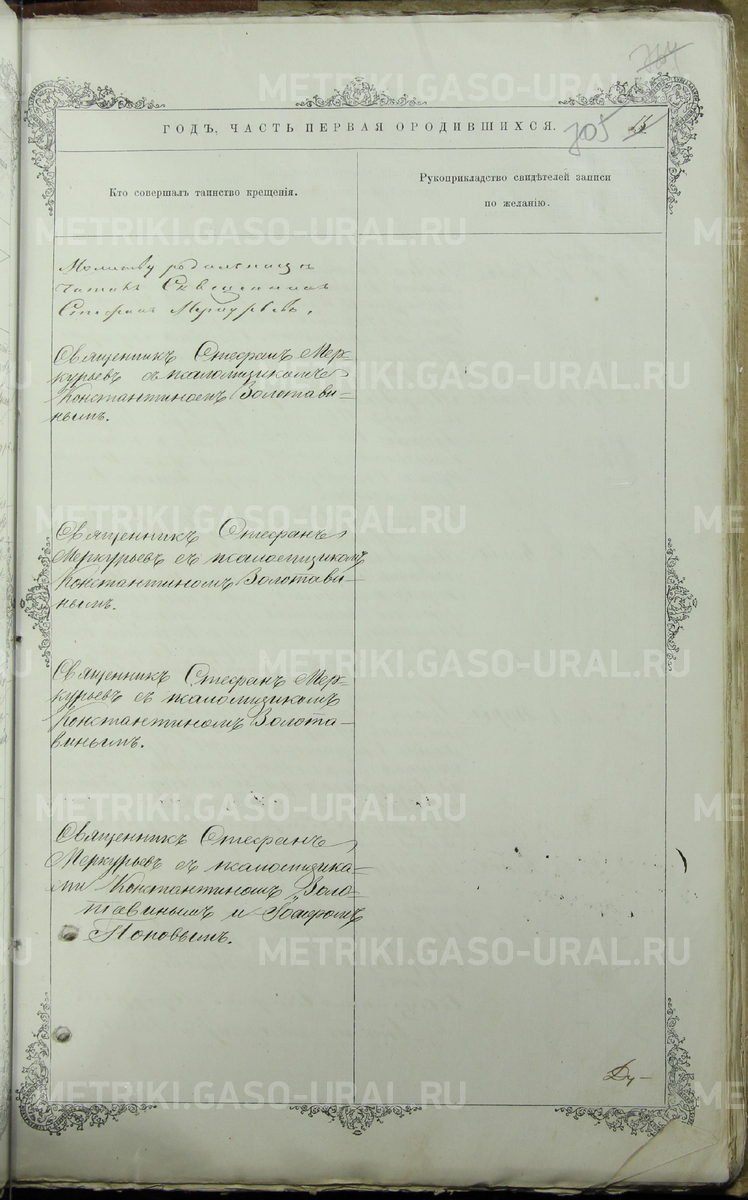 704
ГОДЪ, ЧАСТЬ ПЕРВАЯ О РОДИВШИХСЯ.
705
15
Кто совершалъ таинство крещенія.
Рукоприкладство свидѣтелей записи
по желанію.
Молитву родильницѣ
читалъ Священникъ
Стефанъ Меркурьевъ.
Священникъ Стефанъ Мер-
курьевъ съ псаломщикомъ
Константиномъ Золотави-
нымъ.
Священникъ Стефанъ
Меркурьевъ съ псаломщикомъ
Константиномъ Золотави-
нымъ.
Священникъ Стефанъ Мер-
курьевъ съ псаломщикомъ
Константиномъ Золота-
винымъ.
Священникъ Стефанъ
Меркурьевъ съ псаломщика-
ми Константиномъ Золо-
тавинымъ и
Поповымъ.
Ду-
METRIKI.GASO-URAL.RU